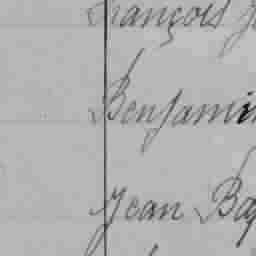 François J
Benjamin
Jean Bap